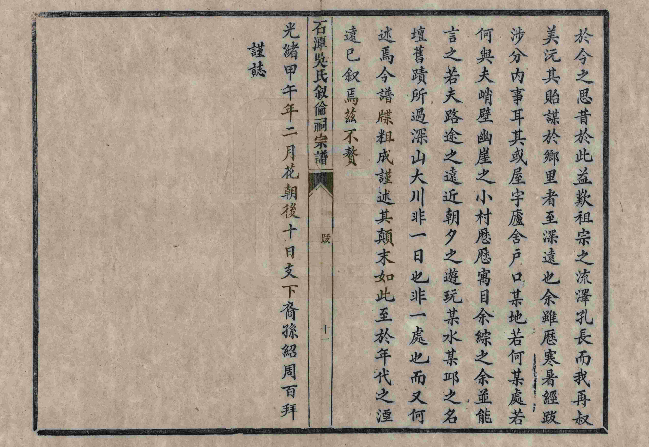 於今之思昔於此益歎祖宗之流澤孔長而我再叔
美沅其貽謀於鄉里者至深遠也余雖歷寒暑經跋
涉分內事耳其或屋宇廬舍戶口某地若何某處若
何與夫峭壁幽崖之小村歷歷寓目余綜之余並能
言之若夫路途之遠近朝夕之遊玩某水某邱之名
壇舊蹟所過深山大川非一日也非一處也而又何
述焉今譜牒粗成謹述其顛末如此至於年代之湮
遠已敘焉茲不贅
石潭吳氏叙倫祠宗譜
跋
十一
光緒甲午年二月花朝後十日支下裔孫紹周百拜
謹誌